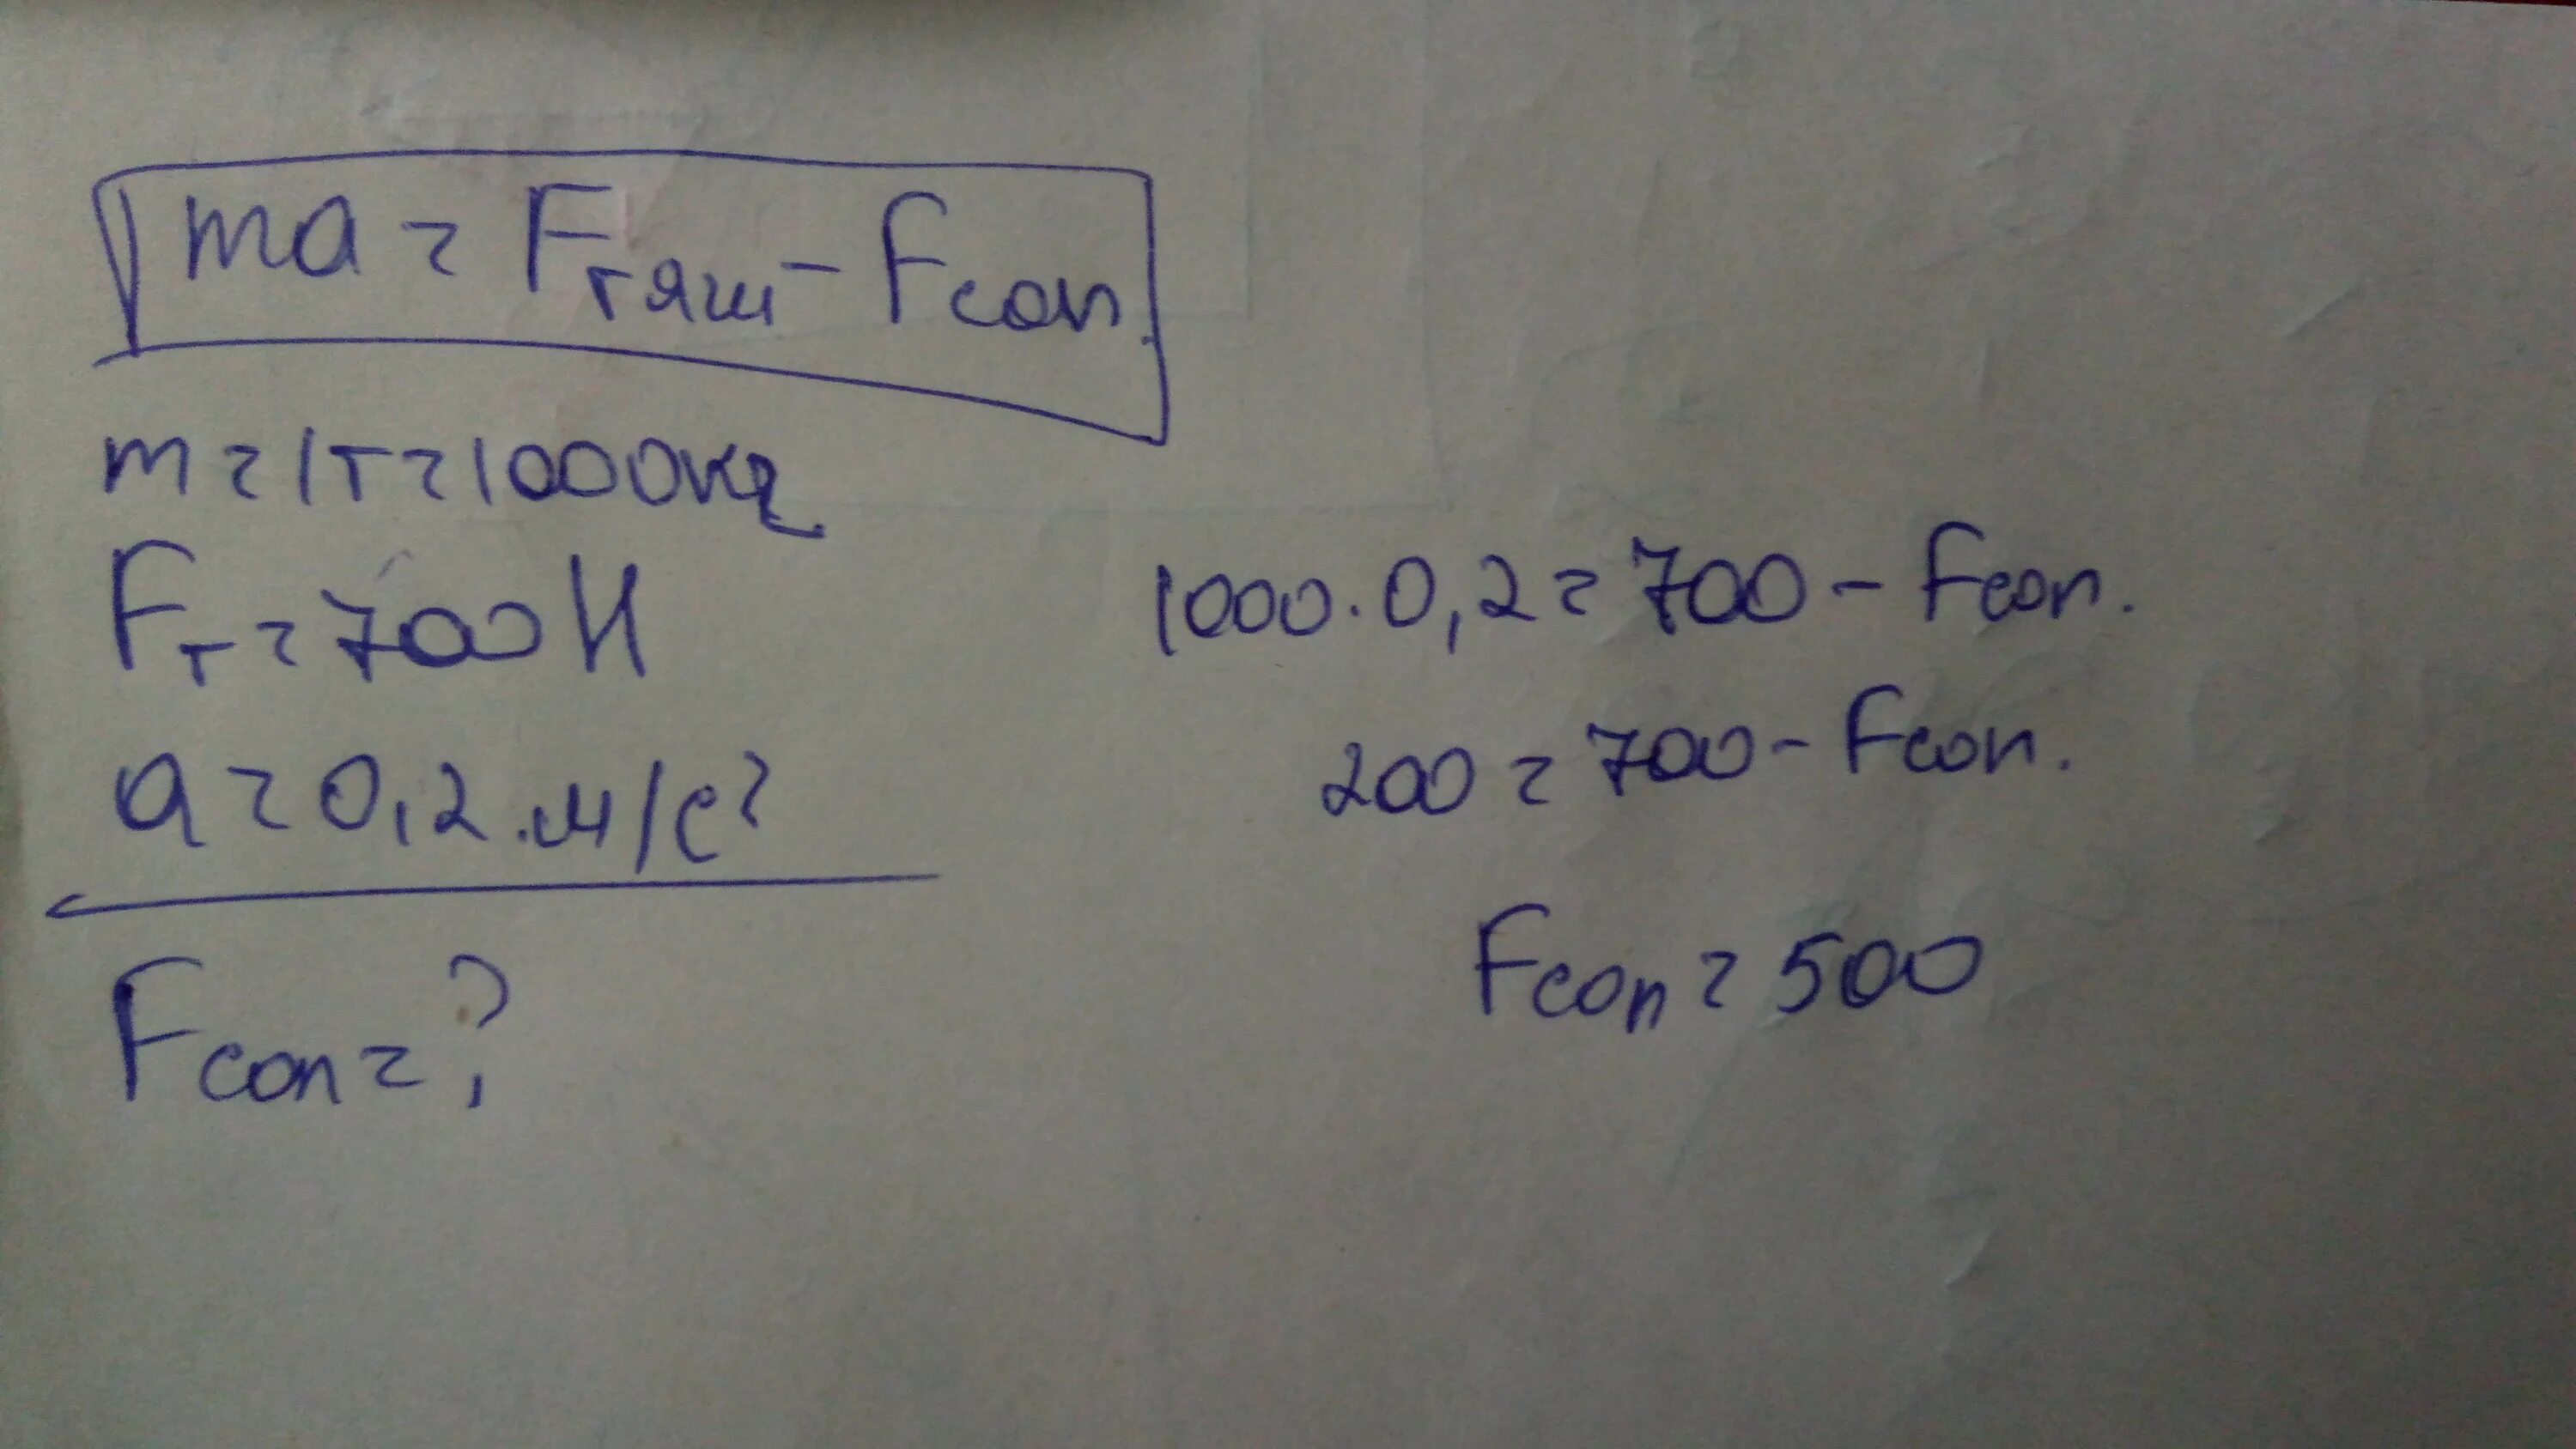 ma = Fтяги - Fсоп.
m = 1т = 1000кг
Fт = 700 Н
a = 0,2 м/с²
Fсоп = ?
1000 · 0,2 = 700 - Fсоп.
200 = 700 - Fсоп.
Fсоп = 500